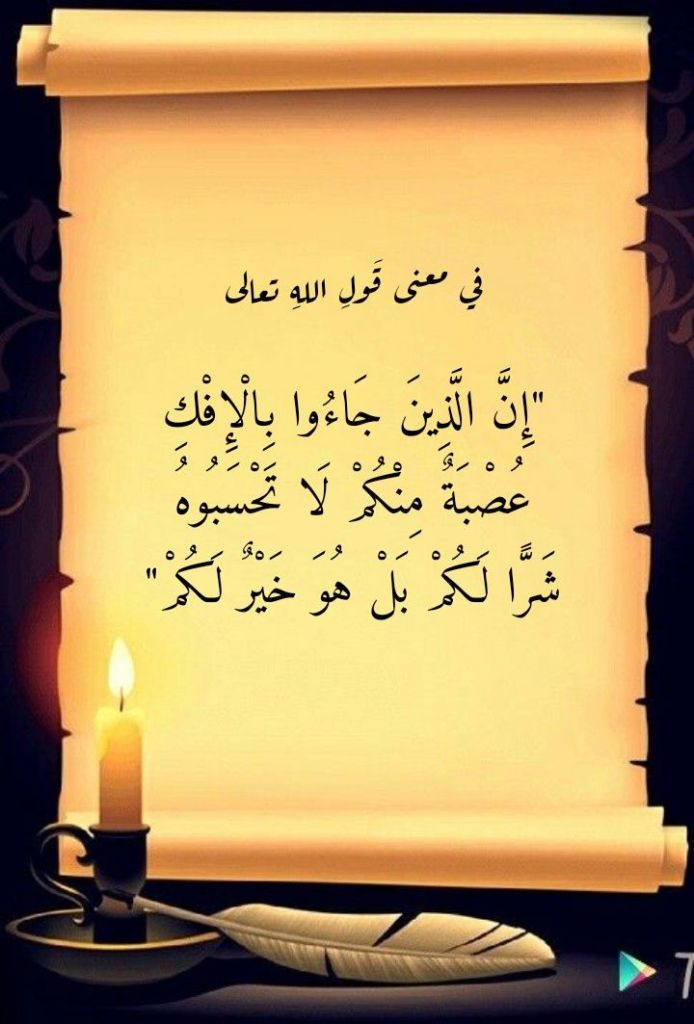 في معنى قَولِ اللهِ تعالى
"إِنَّ الَّذِينَ جَاءُوا بِالْإِفْكِ
عُصْبَةٌ مِنْكُمْ لَا تَحْسَبُوهُ
شَرًّا لَكُمْ بَلْ هُوَ خَيْرٌ لَكُمْ"